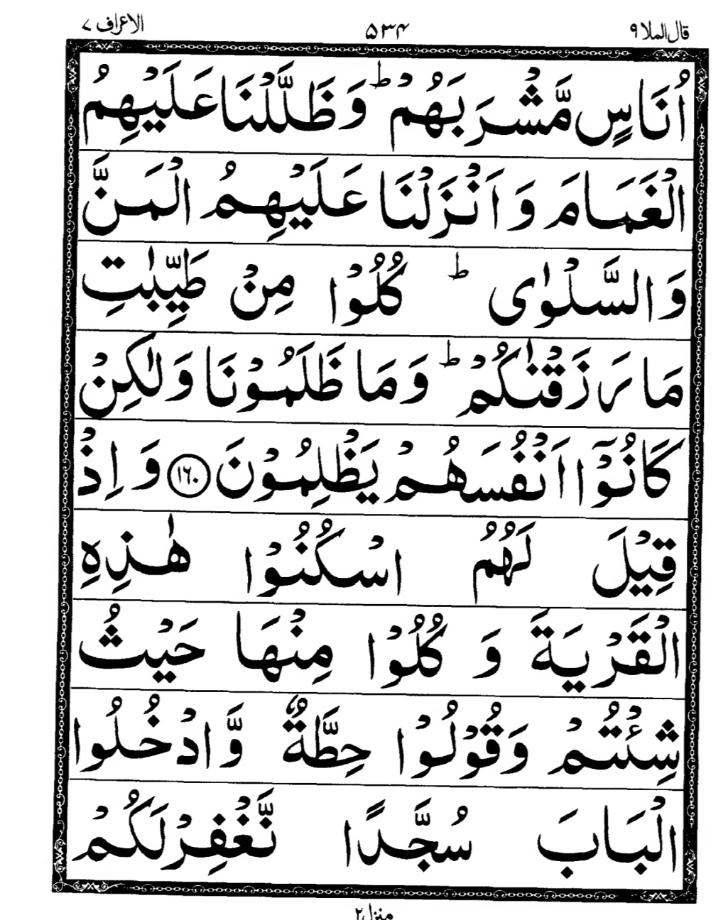 قال الملا ٩ ۵۳۴ الاعراف ٧
اُنَاسٍ مَّشْرَبَهُمْ ؕ وَظَلَّلْنَا عَلَيْهِمُ
الْغَمَامَ وَاَنْزَلْنَا عَلَيْهِمُ الْمَنَّ
وَالسَّلْوٰى ؕ كُلُوْا مِنْ طَيِّبٰتِ
مَا رَزَقْنٰكُمْ ؕ وَمَا ظَلَمُوْنَا وَلٰكِنْ
كَانُوْۤا اَنْفُسَهُمْ يَظْلِمُوْنَ ﴿١٦٠﴾ وَاِذْ
قِيْلَ لَهُمُ اسْكُنُوْا هٰذِهِ
الْقَرْيَةَ وَ كُلُوْا مِنْهَا حَيْثُ
شِئْتُمْ وَقُوْلُوْا حِطَّةٌ وَّادْخُلُوا
الْبَابَ سُجَّدًا نَّغْفِرْلَكُمْ
منزل ٢